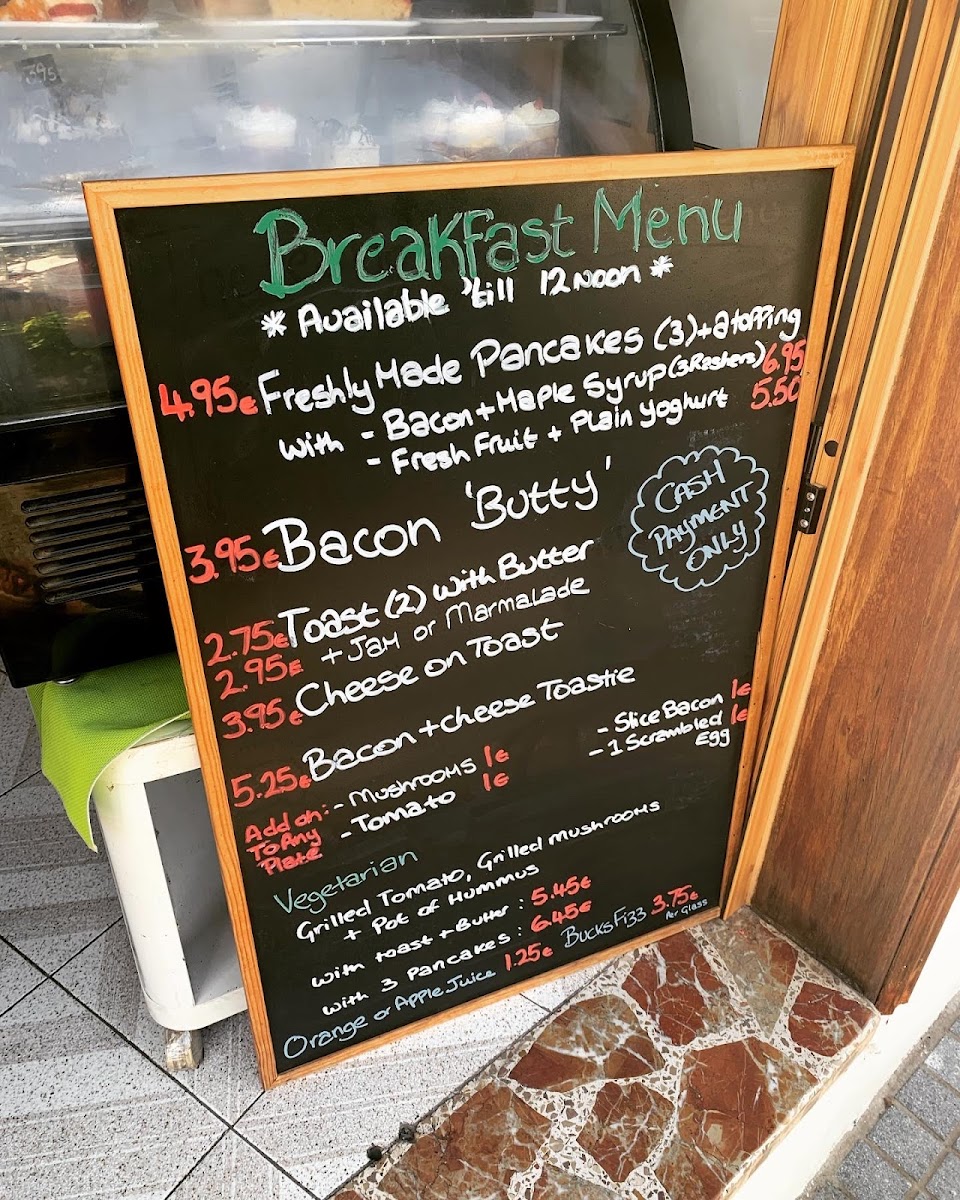 Breakfast Menu
* Available 'till 12 Noon *
4.95€ Freshly Made Pancakes (3) + a topping
With - Bacon + Maple Syrup (3 Rashers) 6.95
- Fresh Fruit + Plain Yoghurt 5.50
3.95€ Bacon 'Butty'
CASH
PAYMENT
ONLY
2.75€ Toast (2) with Butter
2.95€ + Jam or Marmalade
3.95€ Cheese on Toast
5.25€ Bacon + Cheese Toastie
Add on: - Mushrooms 1€
To Any - Tomato 1€
Plate
- Slice Bacon 1€
- 1 Scrambled 1€
Egg
Vegetarian
Grilled Tomato, Grilled mushrooms
+ Pot of Hummus
With toast + Butter : 5.45€
With 3 Pancakes : 6.45€
Orange or Apple Juice 1.25€ BucksFi33 3.75€
Per Glass
3.95